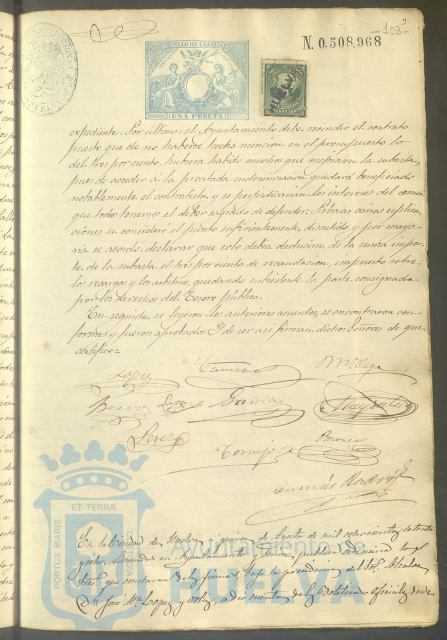 103
N. 0.508,968
SELLO DE AÑO 1878
UNA PESETA
expediente. Por último: el Ayuntamiento debe rescindir el contrato
puesto que de no haberse hecho mencion en el presupuesto lo
del tres por ciento, hubiera habido muchos que mejoraran la subasta,
pues de acceder á la precitada indemnizacion quedará beneficiado
notablemente el contratista y se perjudicarian los intereses del comun
que todos tenemos el deber sagrado de defender. Prévias varias esplica
ciones se consideró el punto suficientemente discutido y por mayo
ria se acordó: declarar que solo debia deducirse de la suma impor
te de la subasta el tres por ciento de recaudacion, impuesto sobre
los recargos y los arbitrios, quedando subsistente la parte consignada
por los derechos del Tesoro público.
En seguida se leyeron los anteriores acuerdos, se encontraron con
formes y fueron aprobados. Y de ser asi firman dichos Señores de que
certifico=
Lopez
Garcia
Perez
Cornejo
ET TERRÆ
PORTUS MARIS
Ayuntamiento de
HUELVA
En la Ciudad de Huelva á quince de Agosto de mil ochocientos setenta
y ocho. Reunidos en Ayuntamiento y sesion pública ordinaria los
Sres. que constan de las firmas, bajo la presidencia del Sor. Alcalde
D. José Mª. Lopez y